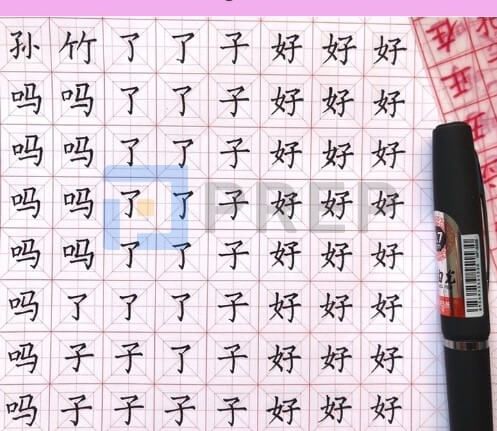 孙 竹 了 了 子 好 好 好
吗 吗 了 了 子 好 好 好
吗 吗 了 了 子 好 好 好
吗 吗 了 了 子 好 好 好
吗 吗 了 了 子 好 好 好
吗 了 了 了 子 好 好 好
吗 子 子 了 子 好 好 好
吗 子 子 子 子 好 好 好
PREP